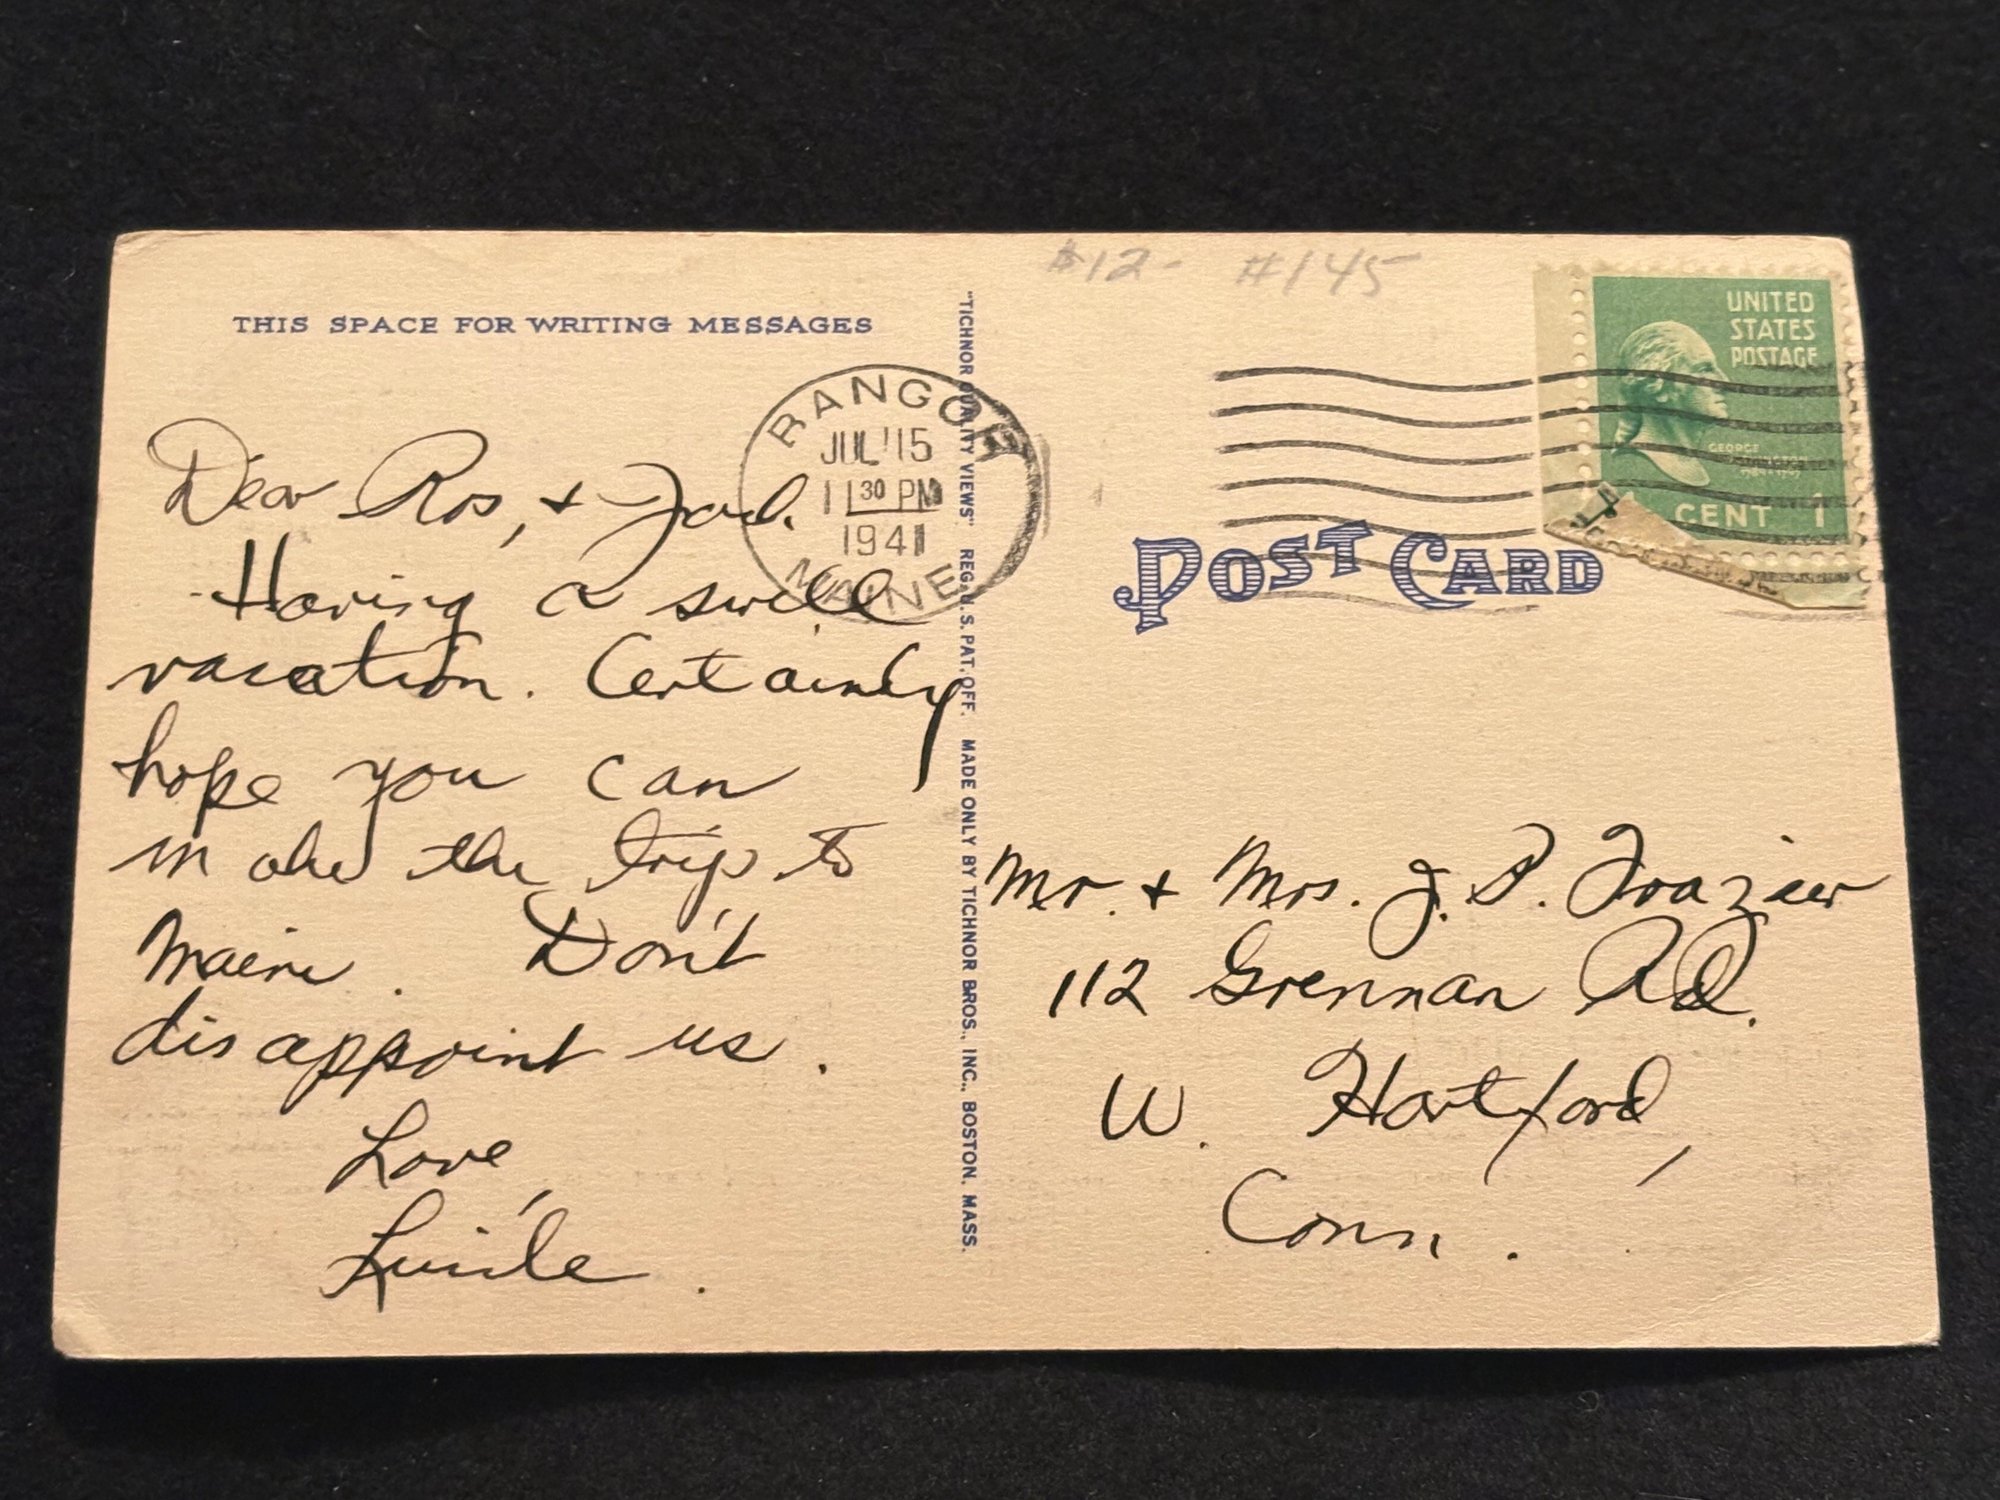 $12- #145
THIS SPACE FOR WRITING MESSAGES
Dear Ros, +
Having a swell
vacation. Certainly
hope you can
make the trip to
Maine. Don't
disappoint us.
Love,
Lucile.
BANGOR
JUL 15
11 30 PM
1941
MAINE
"TICHNOR QUALITY VIEWS" REG. U. S. PAT. OFF. MADE ONLY BY TICHNOR BROS., INC., BOSTON, MASS.
UNITED
STATES
POSTAGE
GEORGE
WASHINGTON
CENT 1
POST CARD
Mr. + Mrs. J. P. Frazier
112 Grennan Rd.
W. Hartford,
Conn.